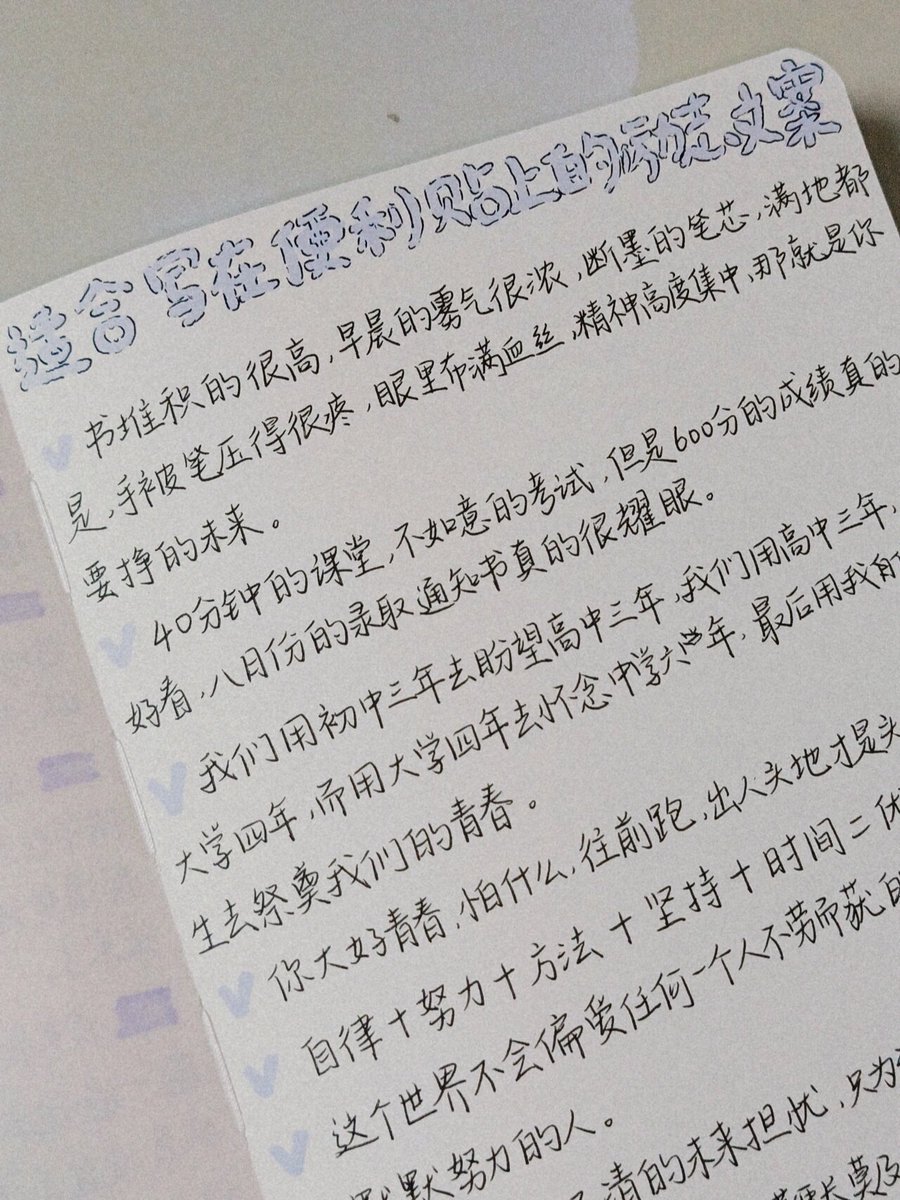 适合写在便利贴上的励志文案
书堆积的很高,早晨的雾气很浓,断墨的笔芯,满地都
是,手被笔压得很疼,眼里布满血丝,精神高度集中,那就是你
要挣的未来。
40分钟的课堂,不如意的考试,但是600分的成绩真的
好看,八月份的录取通知书真的很耀眼。
我们用初中三年去盼望高中三年,我们用高中三年,
大学四年,而用大学四年去怀念中学六年,最后用我
生去祭奠我们的青春。
你大好青春,怕什么,往前跑,出人头地才是头
自律+努力+方法+坚持+时间=优
这个世界不会偏爱任何一个人不劳而获的
默默努力的人。
清的未来担忧,只为
莫及